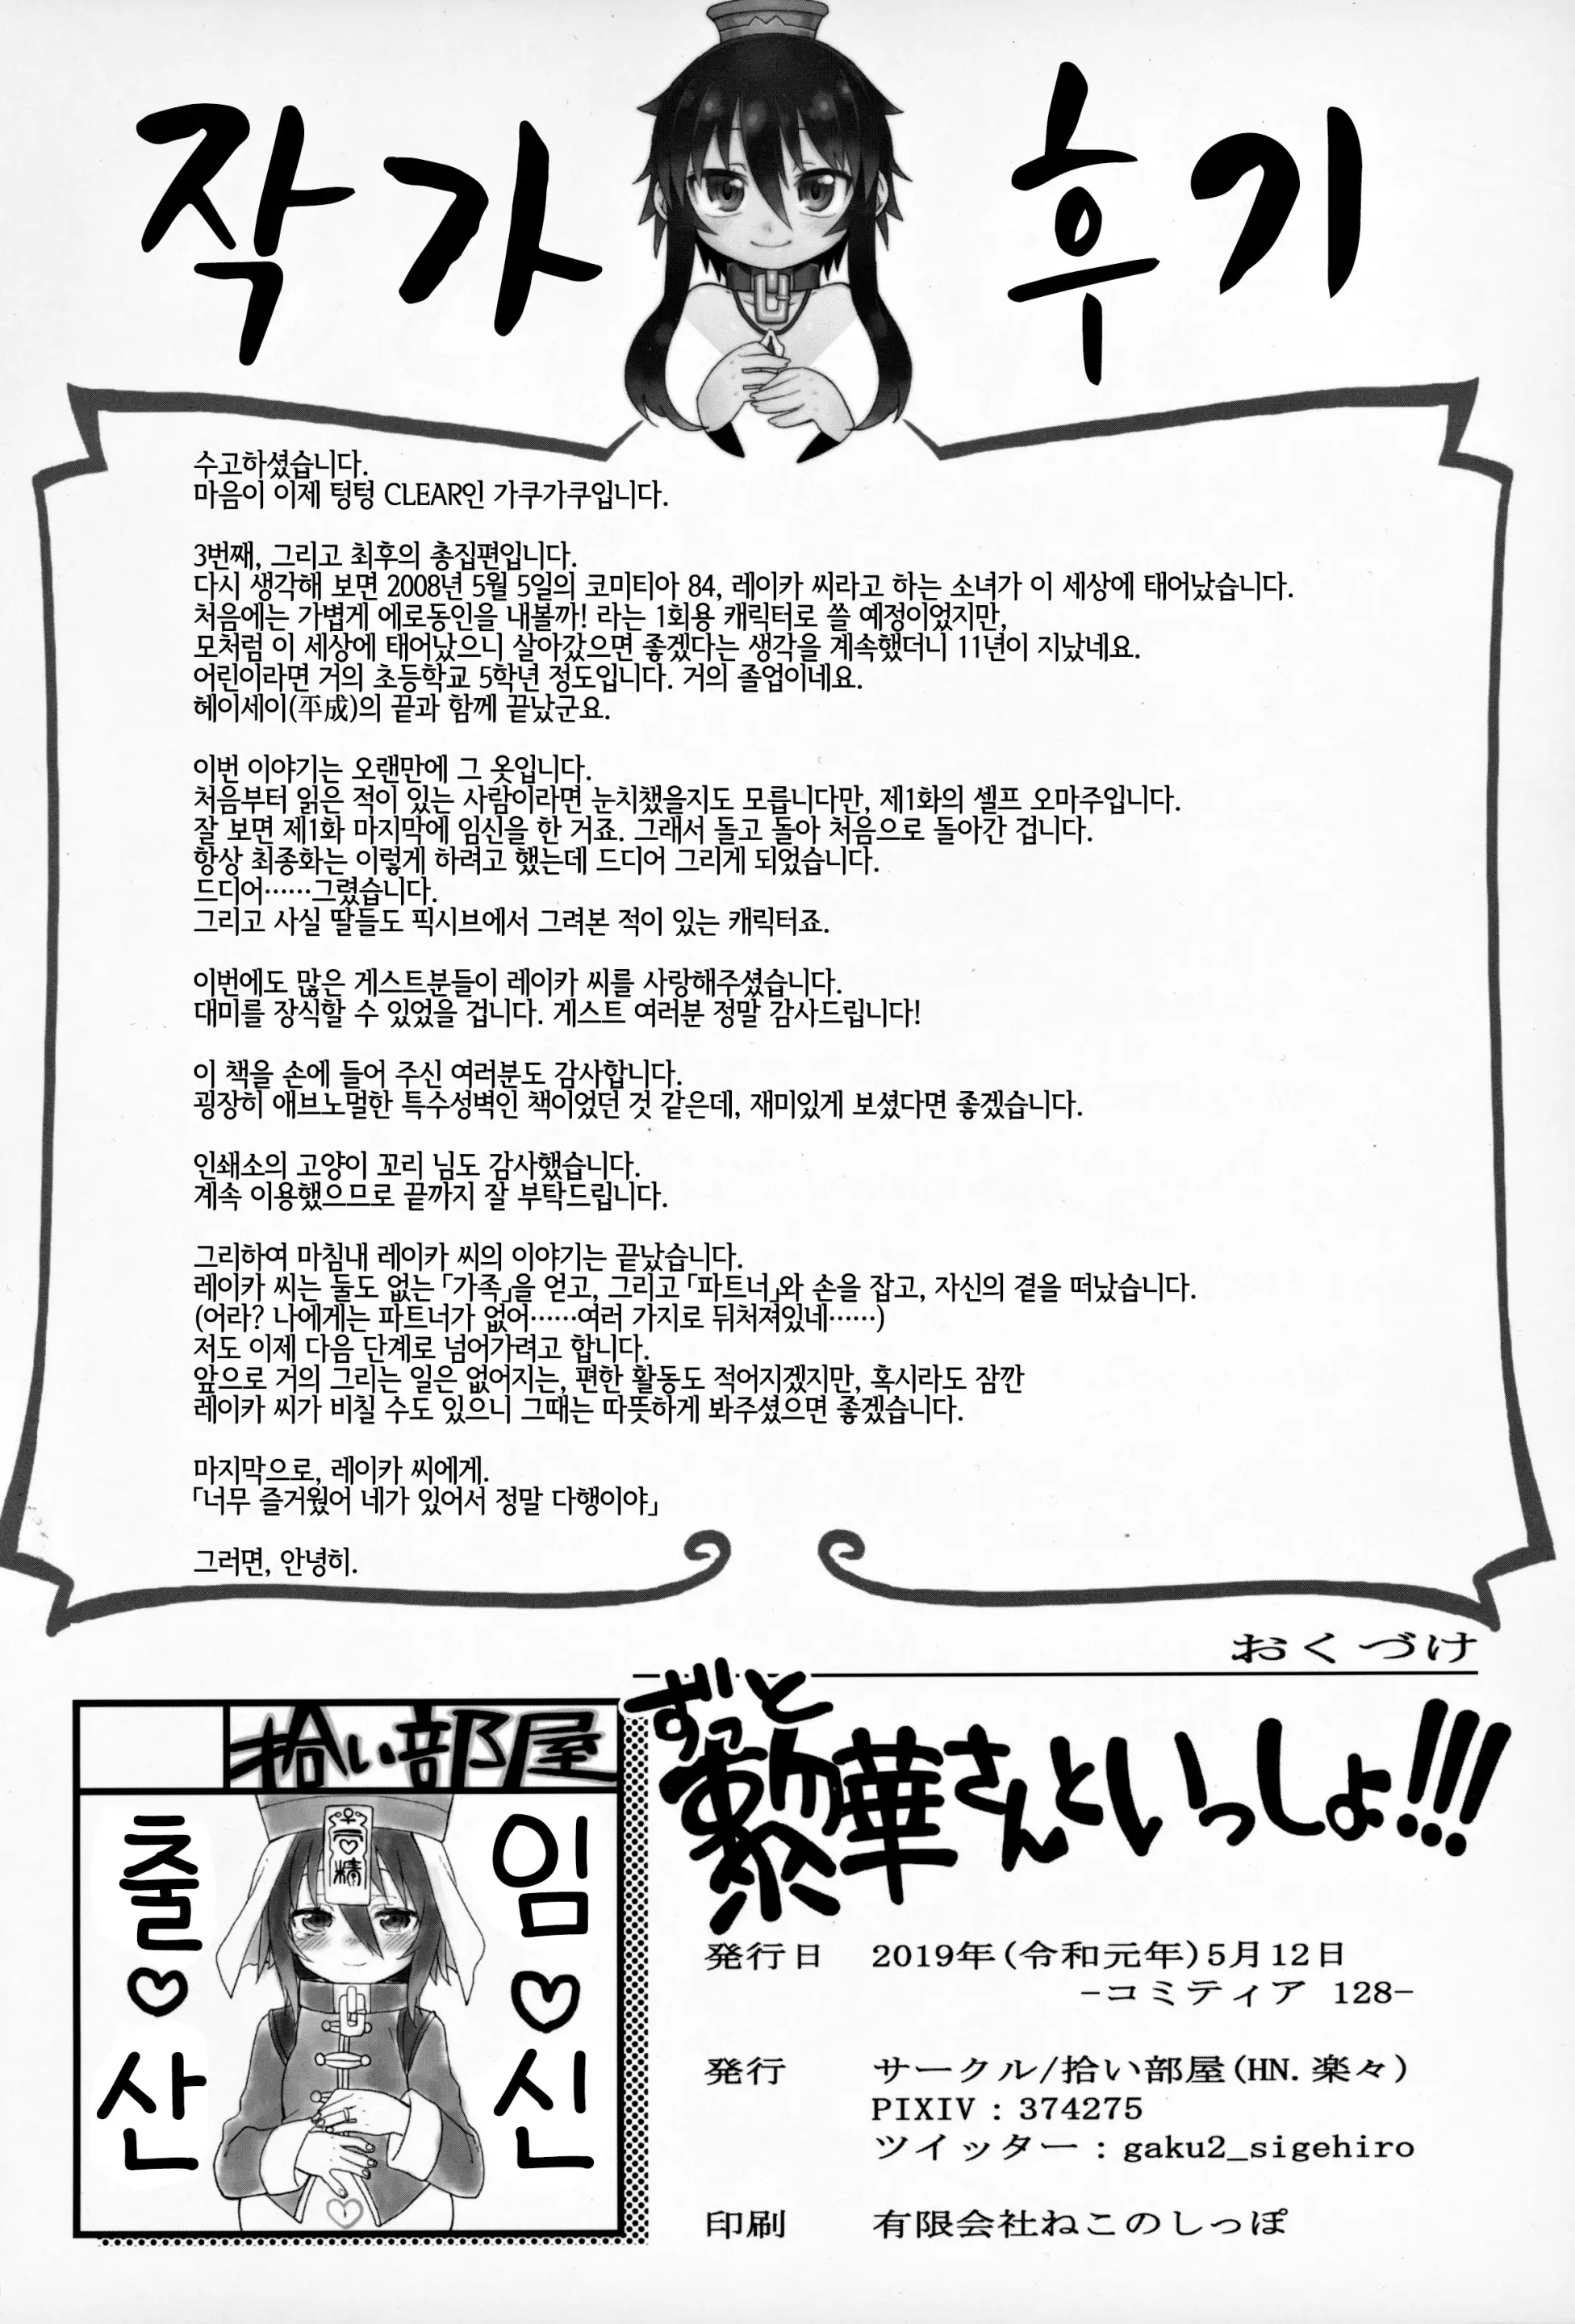 작가 후기
수고하셨습니다.
마음이 이제 텅텅 CLEAR인 가쿠가쿠입니다.
3번째, 그리고 최후의 총집편입니다.
다시 생각해 보면 2008년 5월 5일의 코미티아 84, 레이카 씨라고 하는 소녀가 이 세상에 태어났습니다.
처음에는 가볍게 에로동인을 내볼까! 라는 1회용 캐릭터로 쓸 예정이었지만,
모처럼 이 세상에 태어났으니 살아갔으면 좋겠다는 생각을 계속했더니 11년이 지났네요.
어린이라면 거의 초등학교 5학년 정도입니다. 거의 졸업이네요.
헤이세이(平成)의 끝과 함께 끝났군요.
이번 이야기는 오랜만에 그 옷입니다.
처음부터 읽은 적이 있는 사람이라면 눈치챘을지도 모릅니다만, 제1화의 셀프 오마주입니다.
잘 보면 제1화 마지막에 임신을 한 거죠. 그래서 돌고 돌아 처음으로 돌아간 겁니다.
항상 최종화는 이렇게 하려고 했는데 드디어 그리게 되었습니다.
드디어……그렸습니다.
그리고 사실 딸들도 픽시브에서 그려본 적이 있는 캐릭터죠.
이번에도 많은 게스트분들이 레이카 씨를 사랑해주셨습니다.
대미를 장식할 수 있었을 겁니다. 게스트 여러분 정말 감사드립니다!
이 책을 손에 들어 주신 여러분도 감사합니다.
굉장히 애브노멀한 특수성벽인 책이었던 것 같은데, 재미있게 보셨다면 좋겠습니다.
인쇄소의 고양이 꼬리 님도 감사했습니다.
계속 이용했으므로 끝까지 잘 부탁드립니다.
그리하여 마침내 레이카 씨의 이야기는 끝났습니다.
레이카 씨는 둘도 없는 「가족」을 얻고, 그리고 「파트너」와 손을 잡고, 자신의 곁을 떠났습니다.
(어라? 나에게는 파트너가 없어……여러 가지로 뒤처져있네……)
저도 이제 다음 단계로 넘어가려고 합니다.
앞으로 거의 그리는 일은 없어지는, 편한 활동도 적어지겠지만, 혹시라도 잠깐
레이카 씨가 비칠 수도 있으니 그때는 따뜻하게 봐주셨으면 좋겠습니다.
마지막으로, 레이카 씨에게.
「너무 즐거웠어 네가 있어서 정말 다행이야」
그러면, 안녕히.
おくづけ
ずっと
黎華さんといっしょ!!!
拾い部屋
임♡신
출♡산
発行日 2019年(令和元年)5月12日
-コミティア 128-
発行 サークル/拾い部屋(HN.楽々)
PIXIV : 374275
ツイッター : gaku2_sigehiro
印刷 有限会社ねこのしっぽ